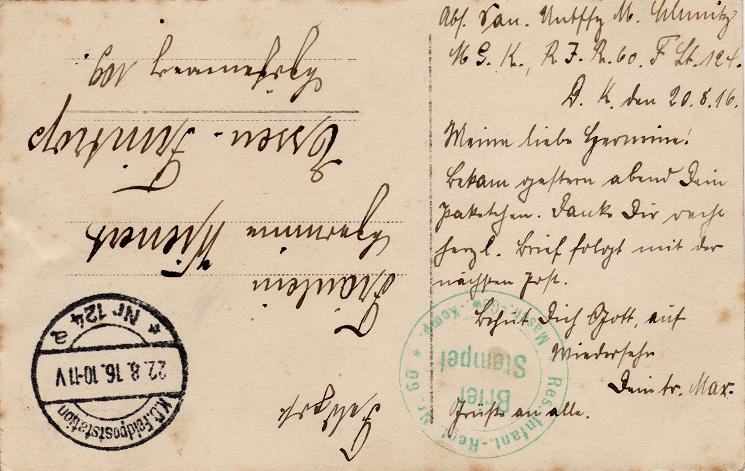 Abs. San. Untffz M. Schmitz
M. G. K., R. I. R. 60. F Lt. 124.
D. K. den 20.8.16.
Meine liebe Hermine!
Bekam gestern abend Dein
Paketchen. Danke Dir recht
herzl. Brief folgt mit der
nächsten Post.
Behüt Dich Gott, auf
Wiedersehn
Dein tr. Max.
Grüße an alle.
Feldpost
Fräulein
Hermine Wienert
Essen-Frintrop
109.
K.D. Feldpoststation
22.8.16.10-11V
* Nr 124 a
Res. Infant.-Regt. Nr. 60 *
Masch. Gew. Komp.
Brief
Stempel